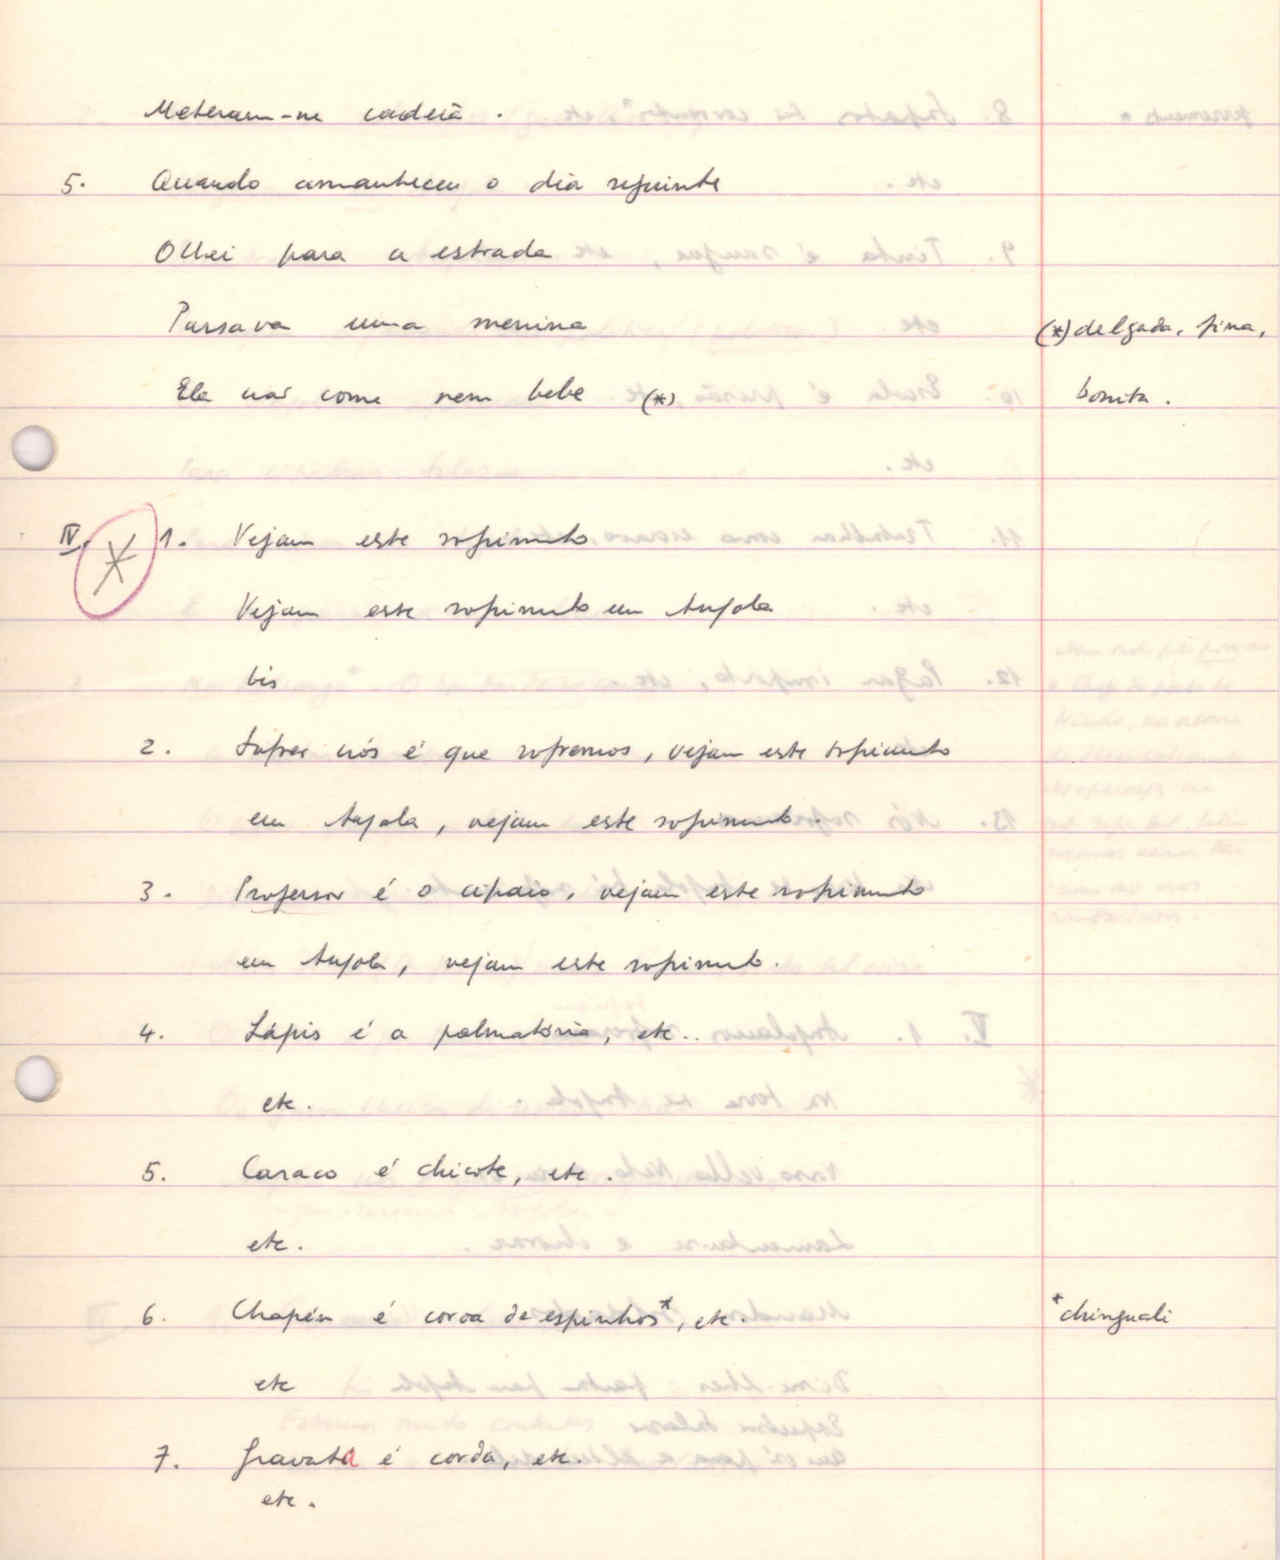 Meteram-me cadeia.
5. Quando amanheceu o dia seguinte
Olhei para a estrada
Passava uma menina
Ela não come nem bebe (*)
(*) delgada, fina,
bonita.
IV. * 1. Vejam este sofrimento
Vejam este sofrimento em Angola
bis
2. Sofrer nós é que sofremos, vejam este sofrimento
em Angola, vejam este sofrimento.
3. Professor é o cipaio, vejam este sofrimento
em Angola, vejam este sofrimento.
4. Lápis é a palmatória, etc..
etc.
5. Casaco é chicote, etc.
etc.
6. Chapéu é coroa de espinhos*, etc.
* chinguali
etc
7. Gravata é corda, etc.
etc.